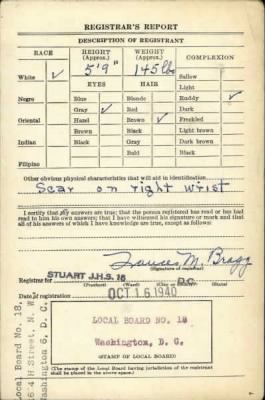 REGISTRAR'S REPORT
DESCRIPTION OF REGISTRANT
RACE HEIGHT (Approx.) WEIGHT (Approx.) COMPLEXION
White ✓ 5'9" 145 lbs Sallow
EYES HAIR Light
Negro Blue Blonde Ruddy ✓
Gray ✓ Red Dark
Oriental Hazel Brown ✓ Freckled
Brown Black Light brown
Indian Black Gray Dark brown
Bald Black
Filipino
Other obvious physical characteristics that will aid in identification
Scar on right wrist
I certify that my answers are true; that the person registered has read or has had
read to him his own answers; that I have witnessed his signature or mark and that
all of his answers of which I have knowledge are true, except as follows:
Frances M. Bragg
(Signature of registrar)
Registrar for STUART J.H.S. 16 D.C.
(Precinct) (Ward) (City or county) (State)
Date of registration OCT 16 1940
LOCAL BOARD NO. 18
Washington, D. C.
(STAMP OF LOCAL BOARD)
(The stamp of the Local Board having jurisdiction of the registrant
shall be placed in the above space.)
Local Board No. 18.
H Street, N. W.
Washington 6, D. C.